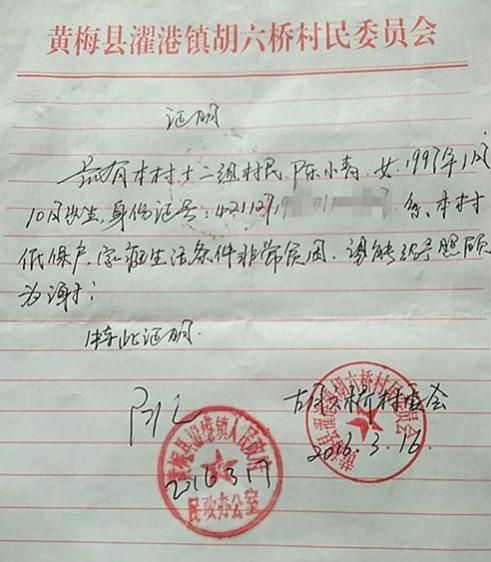 黄梅县濯港镇胡六桥村民委员会
证明
兹有本村十二组村民陈小春，女，1997年1月
10日出生，身份证号：421127 系本村
低保户，家庭生活条件非常贫困，请能给予照顾
为谢！
特此证明。
胡六桥村委会
2016.3.16
2016.3.17
黄梅县濯港镇人民政府
民政办公室
黄梅县濯港镇胡六桥村民委员会